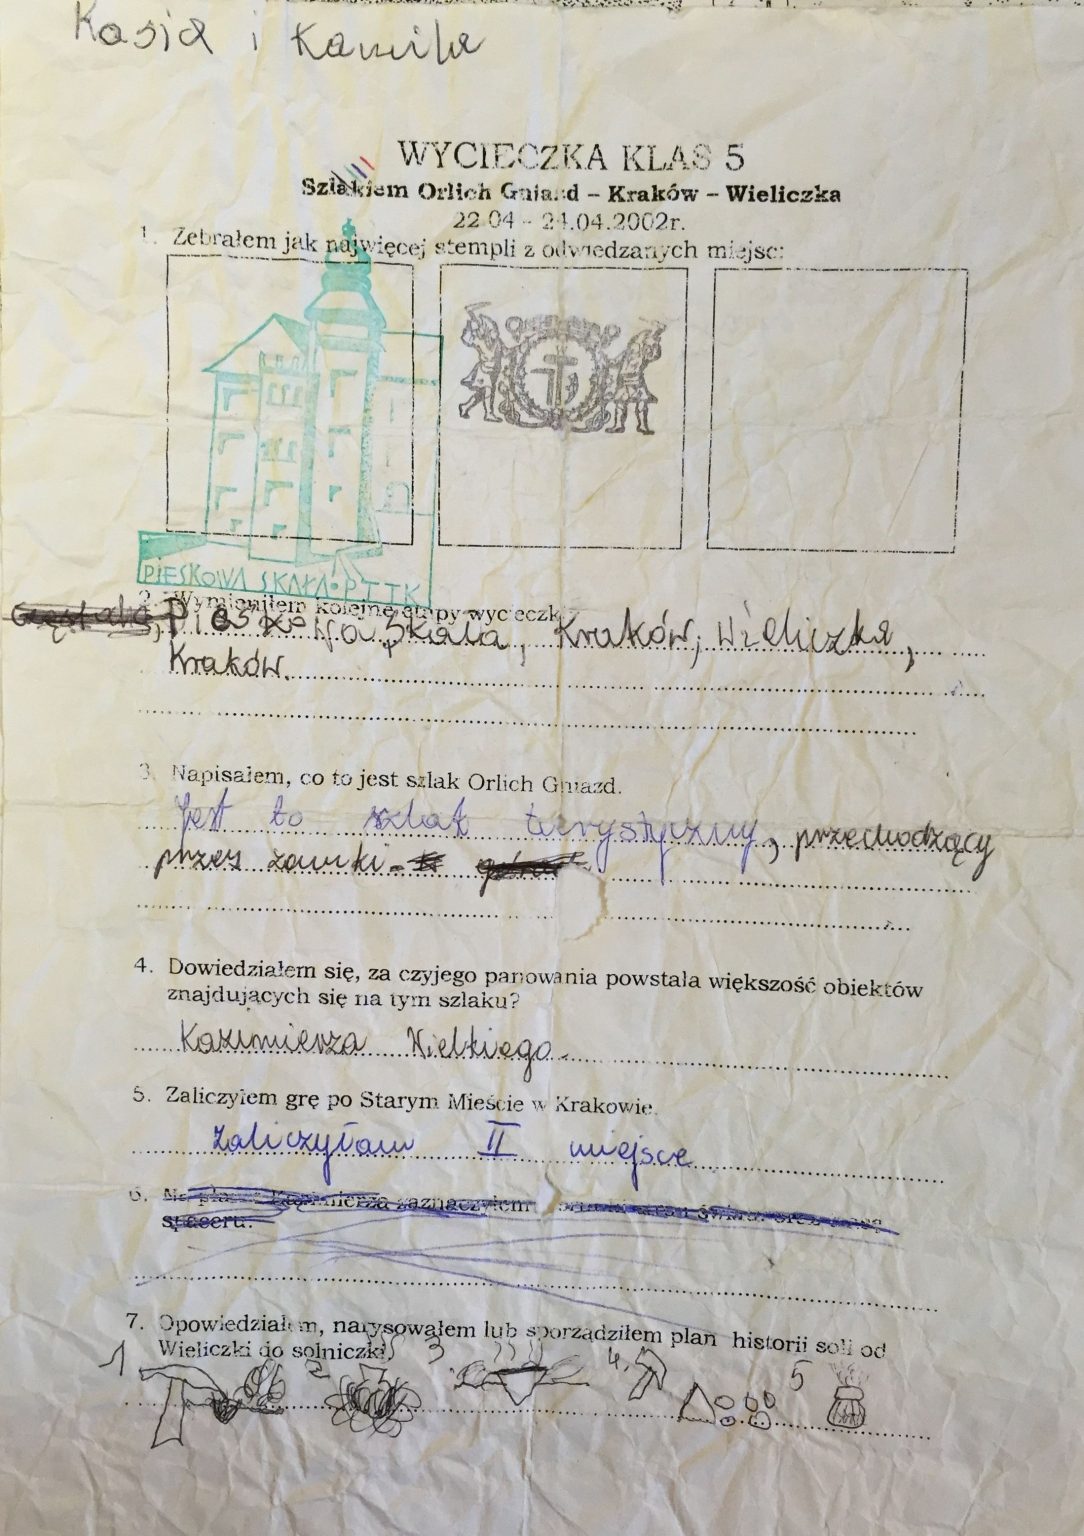 Kasia i Kamila
WYCIECZKA KLAS 5
Szlakiem Orlich Gniazd – Kraków – Wieliczka
22.04 – 24.04.2002r.
1. Zebrałem jak najwięcej stempli z odwiedzanych miejsc:
PIESKOWA SKAŁA • PTTK
2. Wymieniłem kolejne etapy wycieczki
Pieskowa Skała, Kraków, Wieliczka,
Kraków.
3. Napisałem, co to jest szlak Orlich Gniazd.
Jest to szlak turystyczny, przechodzący
przez zamki.
4. Dowiedziałem się, za czyjego panowania powstała większość obiektów
znajdujących się na tym szlaku?
Kazimierza Wielkiego.
5. Zaliczyłem grę po Starym Mieście w Krakowie.
Zaliczyłam II miejsce
6. Kazimierza zaznaczyłem
spaceru.
7. Opowiedziałem, narysowałem lub sporządziłem plan historii soli od
Wieliczki do solniczki
1 2 3. 4. 5